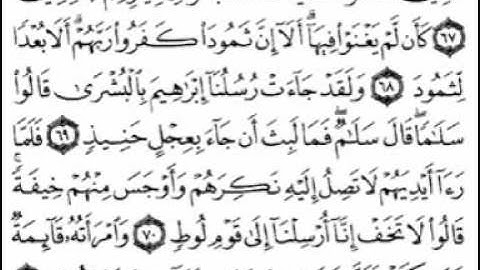 ﴿٦٧﴾ كَأَن لَّمْ يَغْنَوْا۟ فِيهَآ ۗ أَلَآ إِنَّ ثَمُودَا۟ كَفَرُوا۟ رَبَّهُمْ ۗ أَلَا بُعْدًا
لِّثَمُودَ ﴿٦٨﴾ وَلَقَدْ جَآءَتْ رُسُلُنَآ إِبْرَٰهِيمَ بِٱلْبُشْرَىٰ قَالُوا۟
سَلَٰمًا ۖ قَالَ سَلَٰمٌ ۖ فَمَا لَبِثَ أَن جَآءَ بِعِجْلٍ حَنِيذٍ ﴿٦٩﴾ فَلَمَّا
رَءَآ أَيْدِيَهُمْ لَا تَصِلُ إِلَيْهِ نَكِرَهُمْ وَأَوْجَسَ مِنْهُمْ خِيفَةً ۚ
قَالُوا۟ لَا تَخَفْ إِنَّآ أُرْسِلْنَآ إِلَىٰ قَوْمِ لُوطٍ ﴿٧٠﴾ وَٱمْرَأَتُهُۥ قَآئِمَةٌ